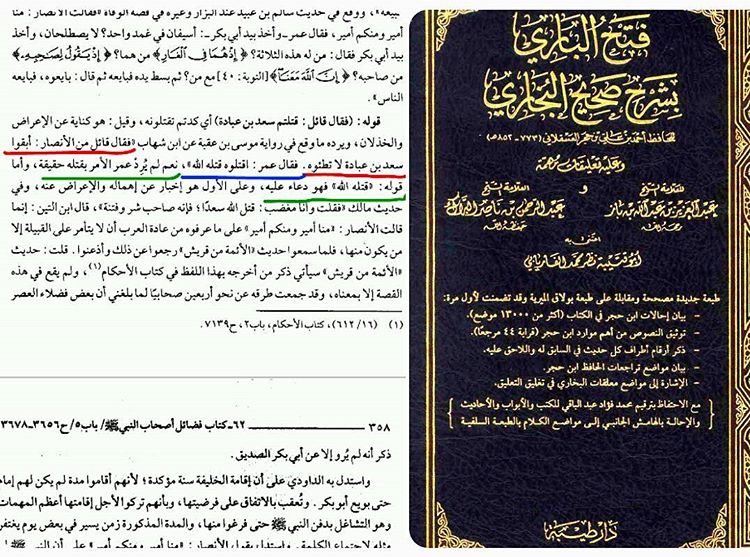 جبيعه»، ووقع في حديث سالم بن عبيد عند البزار وغيره في قصة الوفاة «فقالت الأنصار: منا
أمير ومنكم أمير، فقال عمر ـ وأخذ بيد أبي بكر ـ: أسيفان في غمد واحد؟ لا يصطلحان، وأخذ
بيد أبي بكر فقال: من له هذه الثلاثة؟ ﴿إِذْ هُمَا فِي الْغَارِ﴾ من هما؟ ﴿إِذْ يَقُولُ لِصَاحِبِهِ﴾
من صاحبه؟ ﴿إِنَّ اللَّهَ مَعَنَا﴾ [التوبة: ٤٠] مع من؟ ثم بسط يده فبايعه ثم قال: بايعوه، فبايعه
الناس».
قوله: (فقال قائل: قتلتم سعد بن عبادة) أي كدتم تقتلونه، وقيل: هو كناية عن الإعراض
والخذلان، ويرده ما وقع في رواية موسى بن عقبة عن ابن شهاب «فقال قائل من الأنصار: أبقوا
سعد بن عبادة لا تطئوه. فقال عمر: اقتلوه قتله الله»، نعم لم يُرِدْ عمر الأمر بقتله حقيقة، وأما
قوله: «قتله الله» فهو دعاء عليه، وعلى الأول هو إخبار عن إهماله والإعراض عنه، وفي
حديث مالك «فقلت وأنا مغضب: قتل الله سعدًا؛ فإنه صاحب شر وفتنة»، قال ابن التين: إنما
قالت الأنصار: «منا أمير ومنكم أمير» على ما عرفوه من عادة العرب أن لا يتأمر على القبيلة إلا
من يكون منها، فلما سمعوا حديث «الأئمة من قريش» رجعوا عن ذلك وأذعنوا. قلت: حديث
«الأئمة من قريش» سيأتي ذكر من أخرجه بهذا اللفظ في كتاب الأحكام(١)، ولم يقع في هذه
القصة إلا بمعناه، وقد جمعت طرقه عن نحو أربعين صحابيًا لما بلغني أن بعض فضلاء العصر
(١) (١٦/٦١٢)، كتاب الأحكام، باب٢، ح٧١٣٩.
٣٥٨
٦٢ـ كتاب فضائل أصحاب النبي ﷺ/ باب٥/ ح٣٦٥٦ـ٣٦٧٨
ذكر أنه لم يُرو إلا عن أبي بكر الصديق.
واستدل به الداودي على أن إقامة الخليفة سنة مؤكدة؛ لأنهم أقاموا مدة لم يكن لهم إمام
حتى بويع أبو بكر. وتُعقب بالاتفاق على فرضيتها، وبأنهم تركوا لأجل إقامتها أعظم المهمات
وهو التشاغل بدفن النبي ﷺ حتى فرغوا منها، والمدة المذكورة زمن يسير في بعض يوم يغتفر
مثله لاجتماع الكلمة. واستدل بقول الأنصار: «منا أمير ومنكم أمير» على أن
فتح الباري
بشرح صحيح البخاري
للحافظ أحمد بن علي بن حجر العسقلاني (٧٧٣-٨٥٢هـ)
وعليه تعليقات مهمة
للعلامة الشيخ
عبد العزيز بن عبد الله بن باز
رحمه الله
و
العلامة الشيخ
عبد الرحمن بن ناصر البراك
حفظه الله
اعتنى به
أبو قتيبة نظر محمد الفاريابي
طبعة جديدة مصححة ومقابلة على طبعة بولاق الميرية وقد تضمنت لأول مرة:
- بيان إحالات ابن حجر في الكتاب (أكثر من ١٣٠٠٠ موضع).
- توثيق النصوص من أهم موارد ابن حجر (قرابة ٤٤ مرجعًا).
- ذكر أرقام أطراف كل حديث في السابق له واللاحق عليه.
- بيان مواضع تراجعات الحافظ ابن حجر.
- الإشارة إلى مواضع معلقات البخاري في تغليق التعليق.
مع الاحتفاظ بترقيم محمد فؤاد عبد الباقي للكتب والأبواب والأحاديث
والإحالة بالهامش الجانبي إلى مواضع الكلام بالطبعة السلفية
دار طيبة